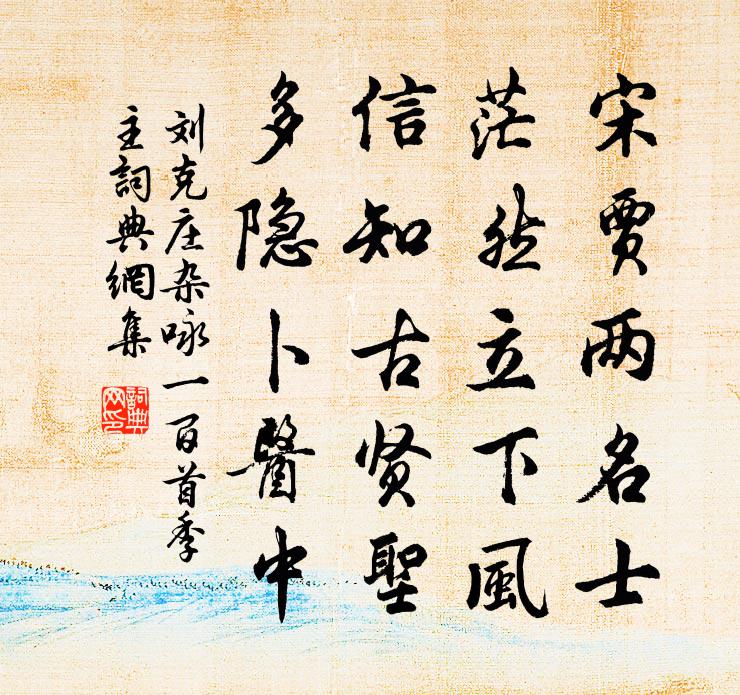 宋贾两名士
茫然立下風
信知古贤聖
多隐卜醫中
刘克庄杂咏一百首季
主詞典網集
詞典
网印